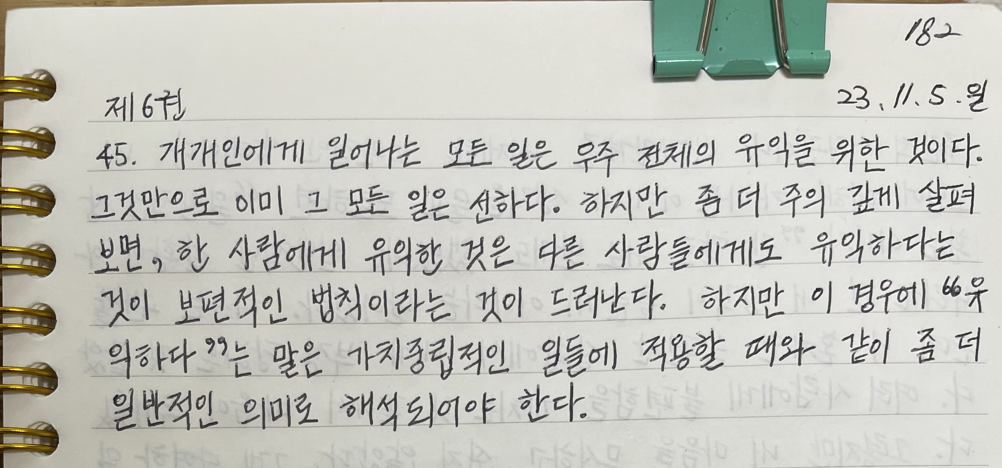 182
제6권 23.11.5.월
45. 개개인에게 일어나는 모든 일은 우주 전체의 유익을 위한 것이다.
그것만으로 이미 그 모든 일은 선하다. 하지만 좀 더 주의 깊게 살펴
보면, 한 사람에게 유익한 것은 다른 사람들에게도 유익하다는
것이 보편적인 법칙이라는 것이 드러난다. 하지만 이 경우에 “유
익하다”는 말은 가치중립적인 일들에 적용할 때와 같이 좀 더
일반적인 의미로 해석되어야 한다.